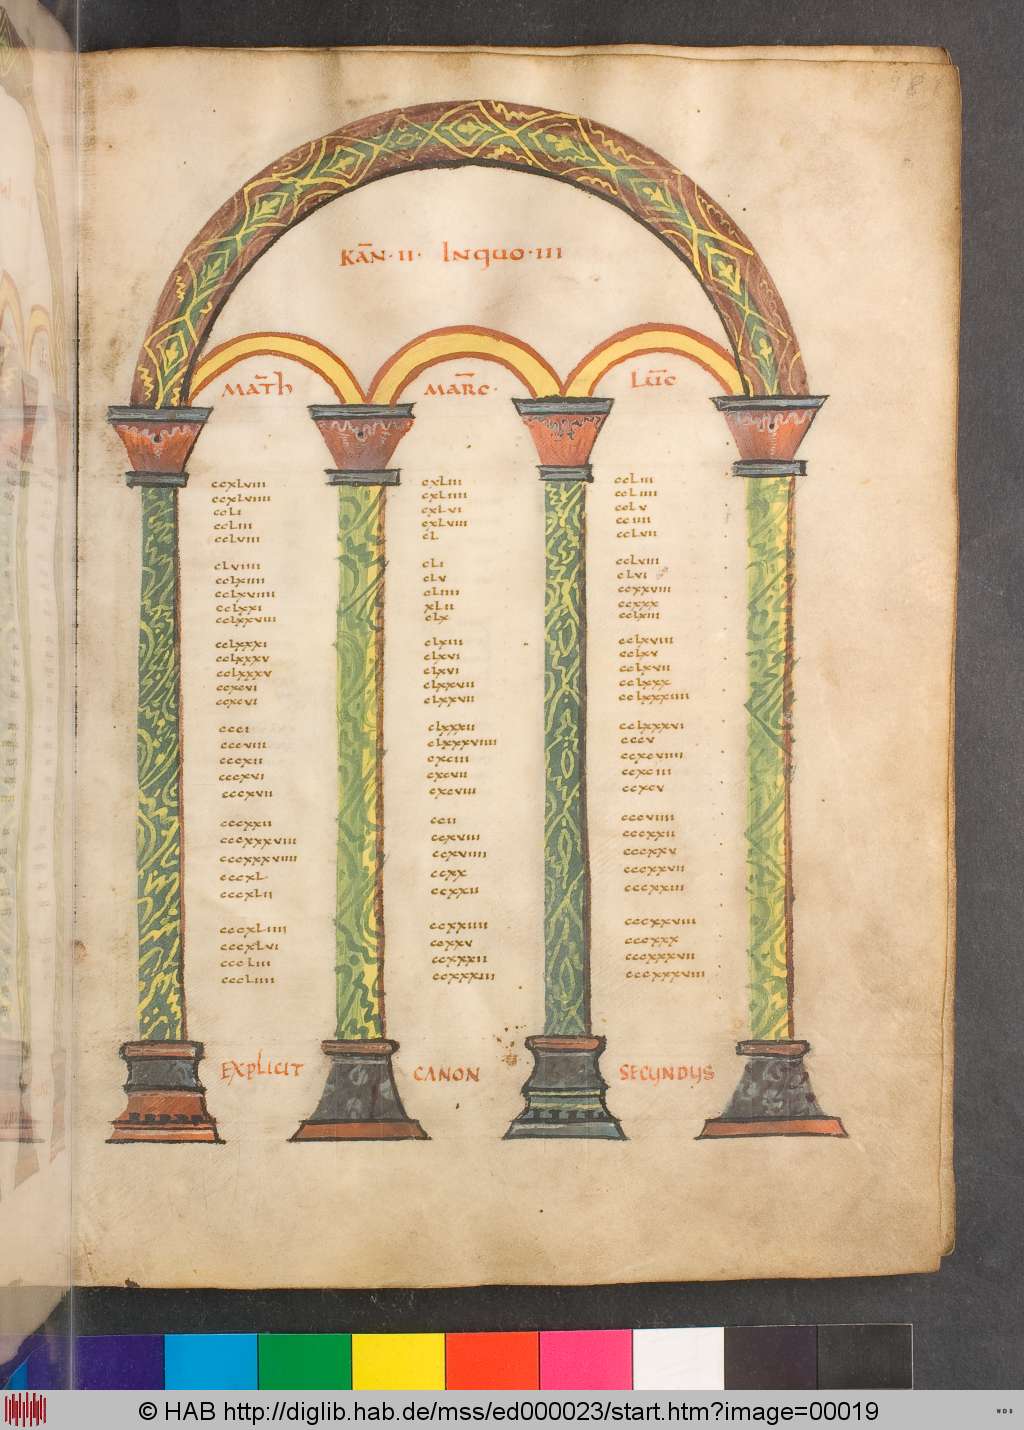 KĀN · II · INQUO · III
MATH MARC · LUC
ccxLviii cxLiii ccLiii
ccxLviiii cxLiiii ccLiiii
ccLi cxLvi ccLv
ccLiii cxLviii cciiii
ccLviii cL ccLvii
cLviiii cLi ccLviii
ccLxiiii cLv cLvi
ccLxviiii cLiiii ccxxviii
ccLxxi xLii ccxxx
ccLxxviii cLx ccLxiii
ccLxxxi cLxiii ccLxviii
ccLxxxv cLxvi ccLxv
ccLxxxv cLxvi ccLxvii
ccxcvi cLxxvii ccLxxx
ccxcvi cLxxvii ccLxxxiiii
ccci cLxxxii ccLxxxvi
cccviii cLxxxviiii cccv
cccxii cxciii ccxcviiii
cccxvi cxcvii ccxciii
cccxvii cxcviii ccxcv
cccxxii ccii cccviiii
cccxxxviii ccxviii cccxxii
cccxxxviiii ccxviiii cccxxv
cccxL ccxx cccxxvii
cccxLii ccxxii cccxxiii
cccxLiiii ccxxiiii cccxxviii
cccxLvi ccxxv cccxxx
cccLiii ccxxxii cccxxxvii
cccLiiii ccxxxiii cccxxxviii
EXPLICIT CANON SECUNDUS
© HAB http://diglib.hab.de/mss/ed000023/start.htm?image=00019